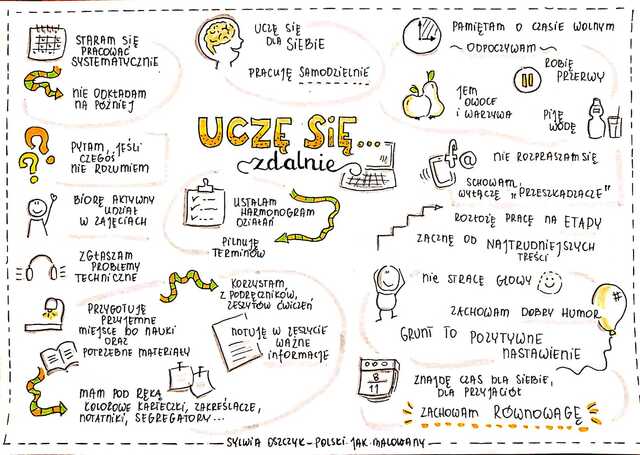 STARAM SIĘ
PRACOWAĆ
SYSTEMATYCZNIE
NIE ODKŁADAM
NA PÓŹNIEJ
PYTAM, JEŚLI
CZEGOŚ
NIE ROZUMIEM
BIORĘ AKTYWNY
UDZIAŁ
W ZAJĘCIACH
ZGŁASZAM
PROBLEMY
TECHNICZNE
PRZYGOTUJĘ
PRZYJEMNE
MIEJSCE DO NAUKI
ORAZ
POTRZEBNE MATERIAŁY
MAM POD RĘKĄ
KOLOROWE KARTECZKI, ZAKREŚLACZE,
NOTATNIKI, SEGREGATORY...
UCZĘ SIĘ
DLA SIEBIE
PRACUJĘ SAMODZIELNIE
UCZĘ SIĘ...
zdalnie
USTALAM
HARMONOGRAM
DZIAŁAŃ
PILNUJĘ
TERMINÓW
KORZYSTAM,
Z PODRĘCZNIKÓW,
ZESZYTÓW ĆWICZEŃ
NOTUJĘ W ZESZYCIE
WAŻNE
INFORMACJE
PAMIĘTAM O CZASIE WOLNYM
~ODPOCZYWAM~
ROBIĘ
PRZERWY
JEM
OWOCE
I WARZYWA
PIJĘ
WODĘ
f@
NIE ROZPRASZAM SIĘ
SCHOWAM,
WYŁĄCZĘ „PRZESZKADZACZE"
ROZŁOŻĘ PRACĘ NA ETAPY
ZACZNĘ OD NAJTRUDNIEJSZYCH
TREŚCI
NIE STRACĘ GŁOWY
#
ZACHOWAM DOBRY HUMOR
GRUNT TO POZYTYWNE
NASTAWIENIE
8
11
ZNAJDĘ CZAS DLA SIEBIE,
DLA PRZYJACIÓŁ
ZACHOWAM RÓWNOWAGĘ
SYLWIA OSZCZYK - POLSKI JAK MALOWANY